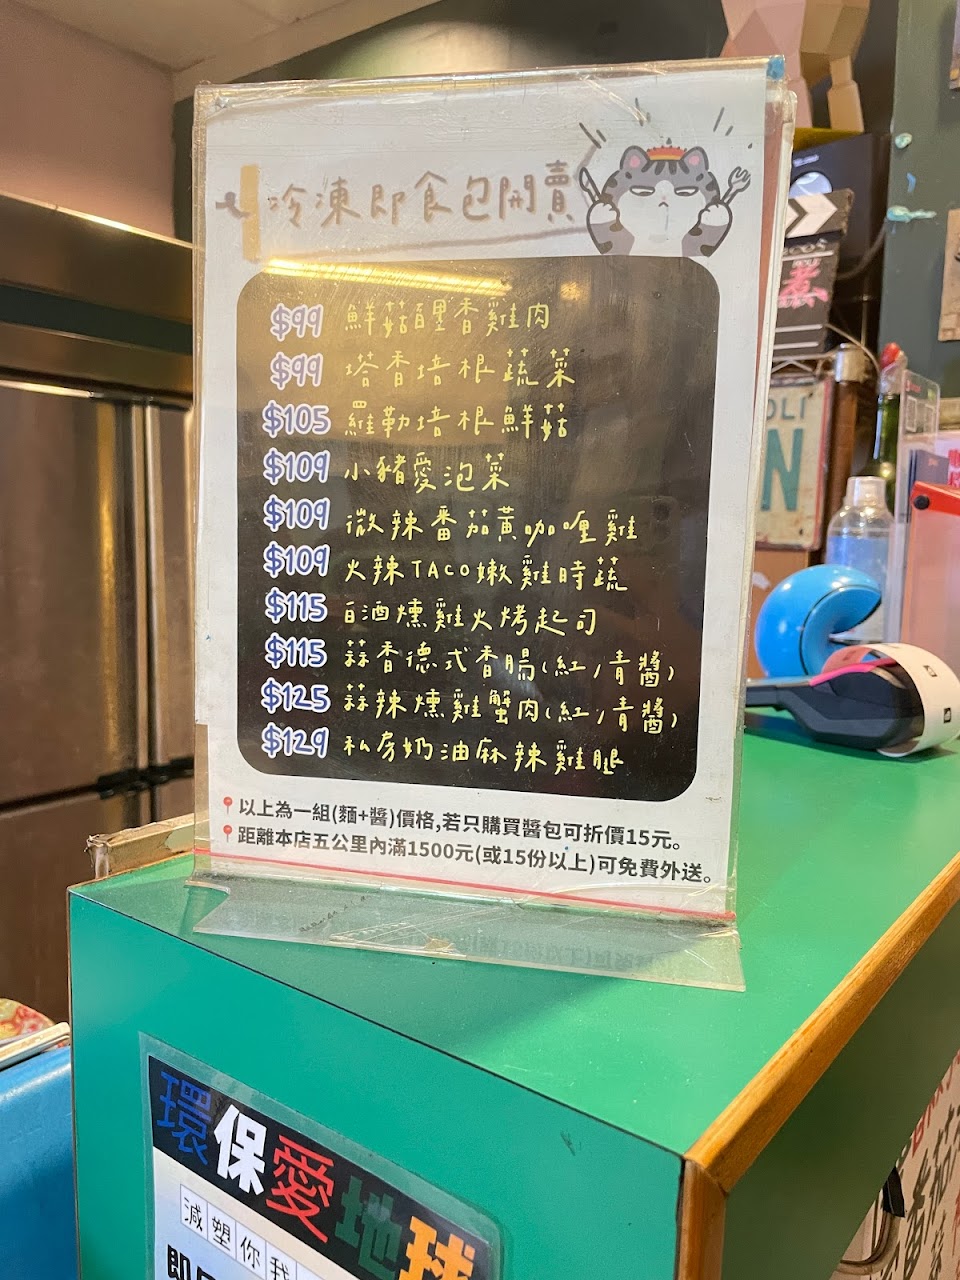 冷凍即食包開賣
$99 鮮菇百里香雞肉
$99 塔香培根蔬菜
$105 羅勒培根鮮菇
$109 小豬愛泡菜
$109 微辣番茄黃咖喱雞
$109 火辣TACO嫩雞時蔬
$115 白酒燻雞火烤起司
$115 蒜香德式香腸(紅/青醬)
$125 蒜辣燻雞蟹肉(紅/青醬)
$129 私房奶油麻辣雞腿
以上為一組(麵+醬)價格,若只購買醬包可折價15元。
距離本店五公里內滿1500元(或15份以上)可免費外送。
環保愛地球
減塑你我